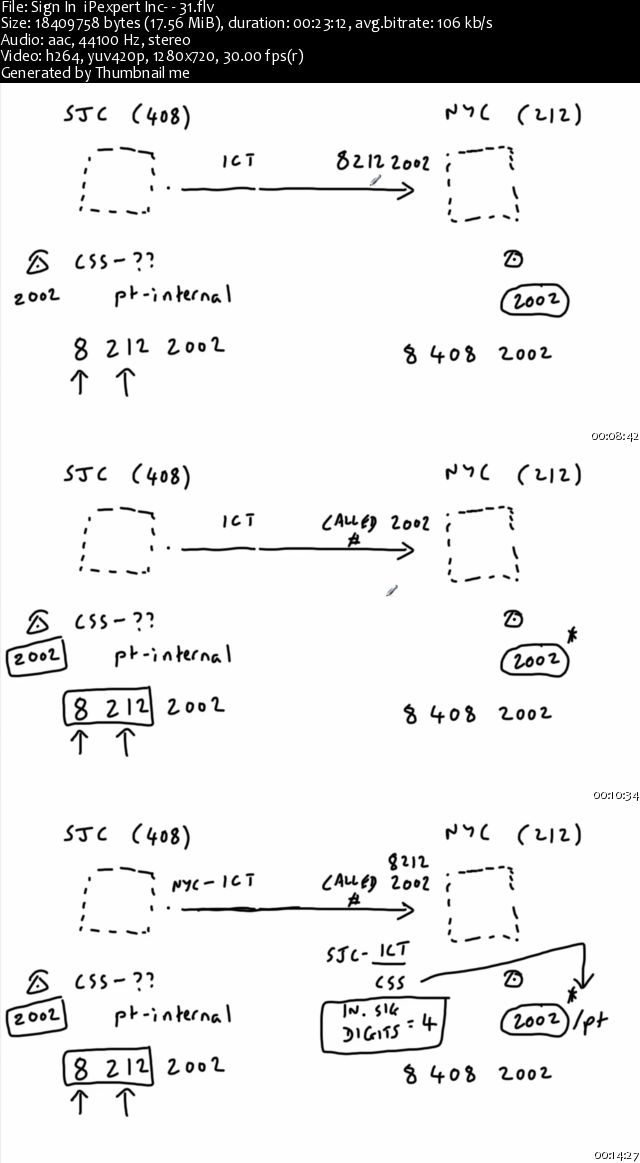 File: Sign In  iPexpert Inc- - 31.flv
Size: 18409758 bytes (17.56 MiB), duration: 00:23:12, avg.bitrate: 106 kb/s
Audio: aac, 44100 Hz, stereo
Video: h264, yuv420p, 1280x720, 30.00 fps(r)
Generated by Thumbnail me
SJC (408) NYC (212)
ICT 8212 2002
CSS-??
2002 pt-internal 2002
8 212 2002 8 408 2002
00:08:42
SJC (408) NYC (212)
ICT CALLED 2002
#
CSS-?? *
2002 pt-internal 2002
8 212 2002 8 408 2002
00:10:34
SJC (408) NYC (212)
8212
NYC-ICT CALLED 2002
#
SJC-ICT
CSS-?? CSS *
2002 pt-internal IN. SIG 2002/pt
DIGITS = 4
8 212 2002 8 408 2002
00:14:27